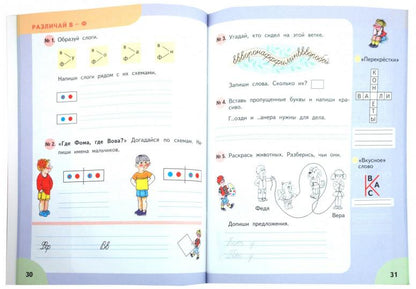 РАЗЛИЧАЙ В – Ф
№ 1. Образуй слоги.
Напиши слоги рядом с их схемами.
№ 2. «Где Фома, где Вова?» Догадайся по схемам. На-
пиши имена мальчиков.
Вв
30
№ 3. Угадай, кто сидел на этой ветке.
Запиши слова. Сколько их?
№ 4. Вставь пропущенные буквы и напиши кра-
сиво.
Г..озди и ..анера нужны для дела.
№ 5. Раскрась животных. Разберись, чьи они.
Федя
Вера
Допиши предложения.
«Перекрёстки»
КОНФЕТЫ
ВАЛИ
«Вкусное»
слово
К
В
А
С
31